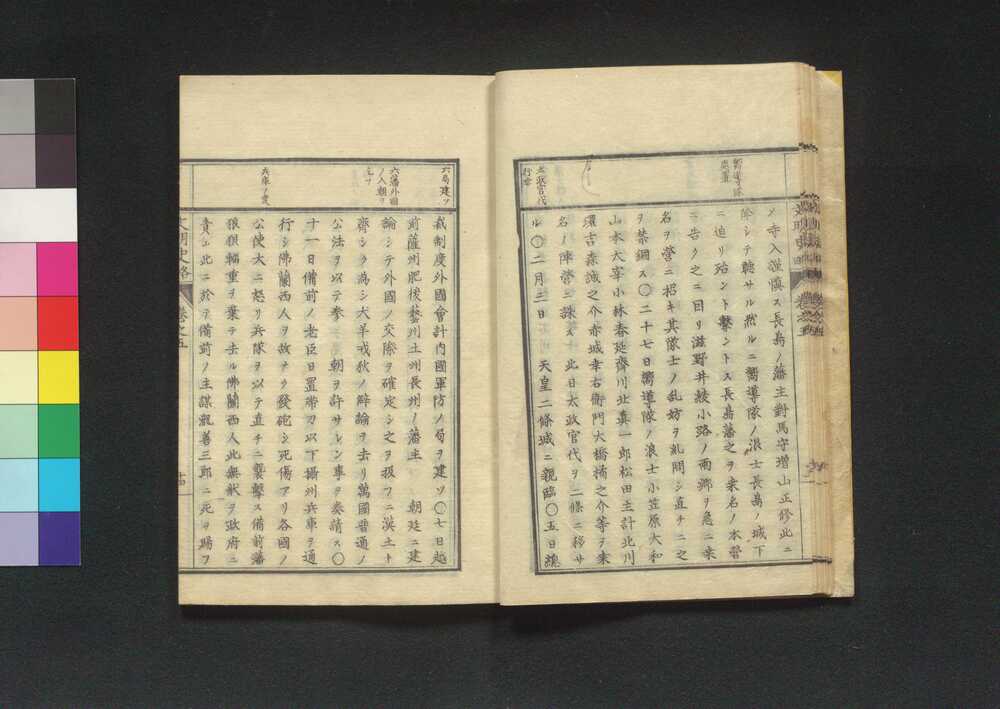 嚮導隊
處置
太政官代
行幸
メ寺入謹愼ス長島ノ藩主對馬守増山正修此ニ
除シテ赦サル然ルニ嚮導隊ノ浪士長島ノ城下
ニ迫リ殆ント擊ントス長島藩之ヲ桒名ノ本營
ニ告ク之ニ因リ滋野井綾小路ノ両卿ヲ急ニ桒
名ヲ營ニ招キ其隊士ノ乱妨ヲ糺問シ直チニ之
ヲ禁錮ス〇二十七日嚮導隊ノ浪士小笠原大和
山本太宰小林春延齊川北眞一郎松田主計北川
環吉森誠之介赤城幸右衛門大橋橘之介等ヲ桒
名ノ陣營ニ誅 此日太政官代ヲ二條ニ移サ
ル〇二月三日 天皇二條城ニ親臨〇五日總
六局建ツ
六藩外國
ノ入朝ヲ
乞フ
兵庫ノ変
裁制度外國會計内國軍防ノ局ヲ建ツ〇七日越
前薩州肥後藝州土州長州ノ藩主 朝廷ニ建
論シテ外國ノ交際ヲ確定シ之ヲ扱フニ漢土ト
齊シク為シ犬羊戎狄ノ辭論ヲ去リ萬國普通ノ
公法ヲ以テ參 朝ヲ許サレン事ヲ奏請ス〇
十一日備前ノ老臣日置帶刀以下攝州兵庫ヲ通
行シ佛蘭西人ヲ故ナク發砲シ死傷アリ各國ノ
公使大ニ怒リ兵隊ヲ以テ直チニ襲擊ス備前藩
狼狽輜重ヲ棄テ去ル佛蘭西人此無狀ヲ政府ニ
責ム此ニ於テ備前ノ主謀瀧善三郎ニ死ヲ賜フ
文明史略 卷之五